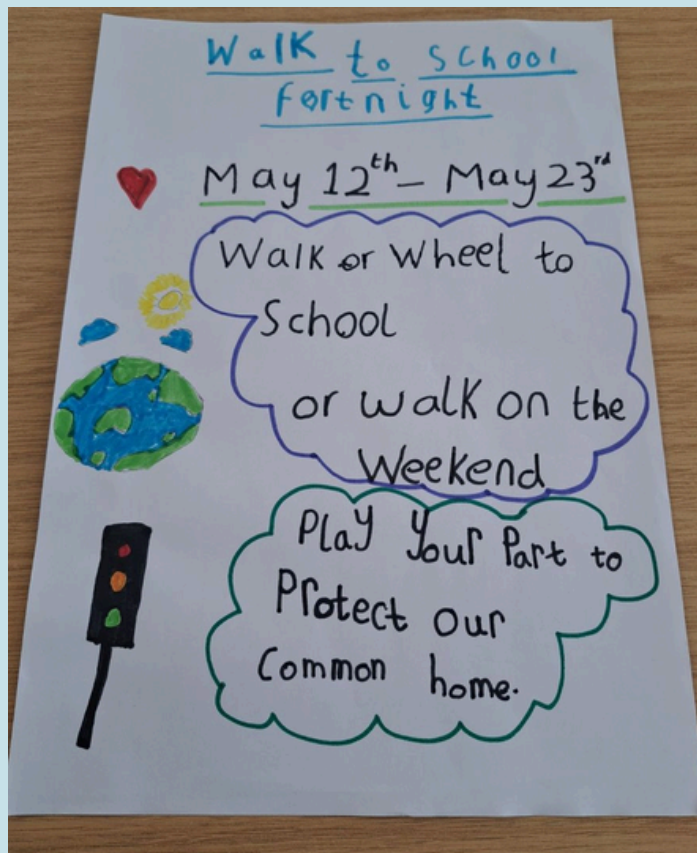 Walk to School
fortnight
May 12th - May 23rd
Walk or Wheel to
School
or walk on the
Weekend
Play Your Part to
Protect our
Common home.